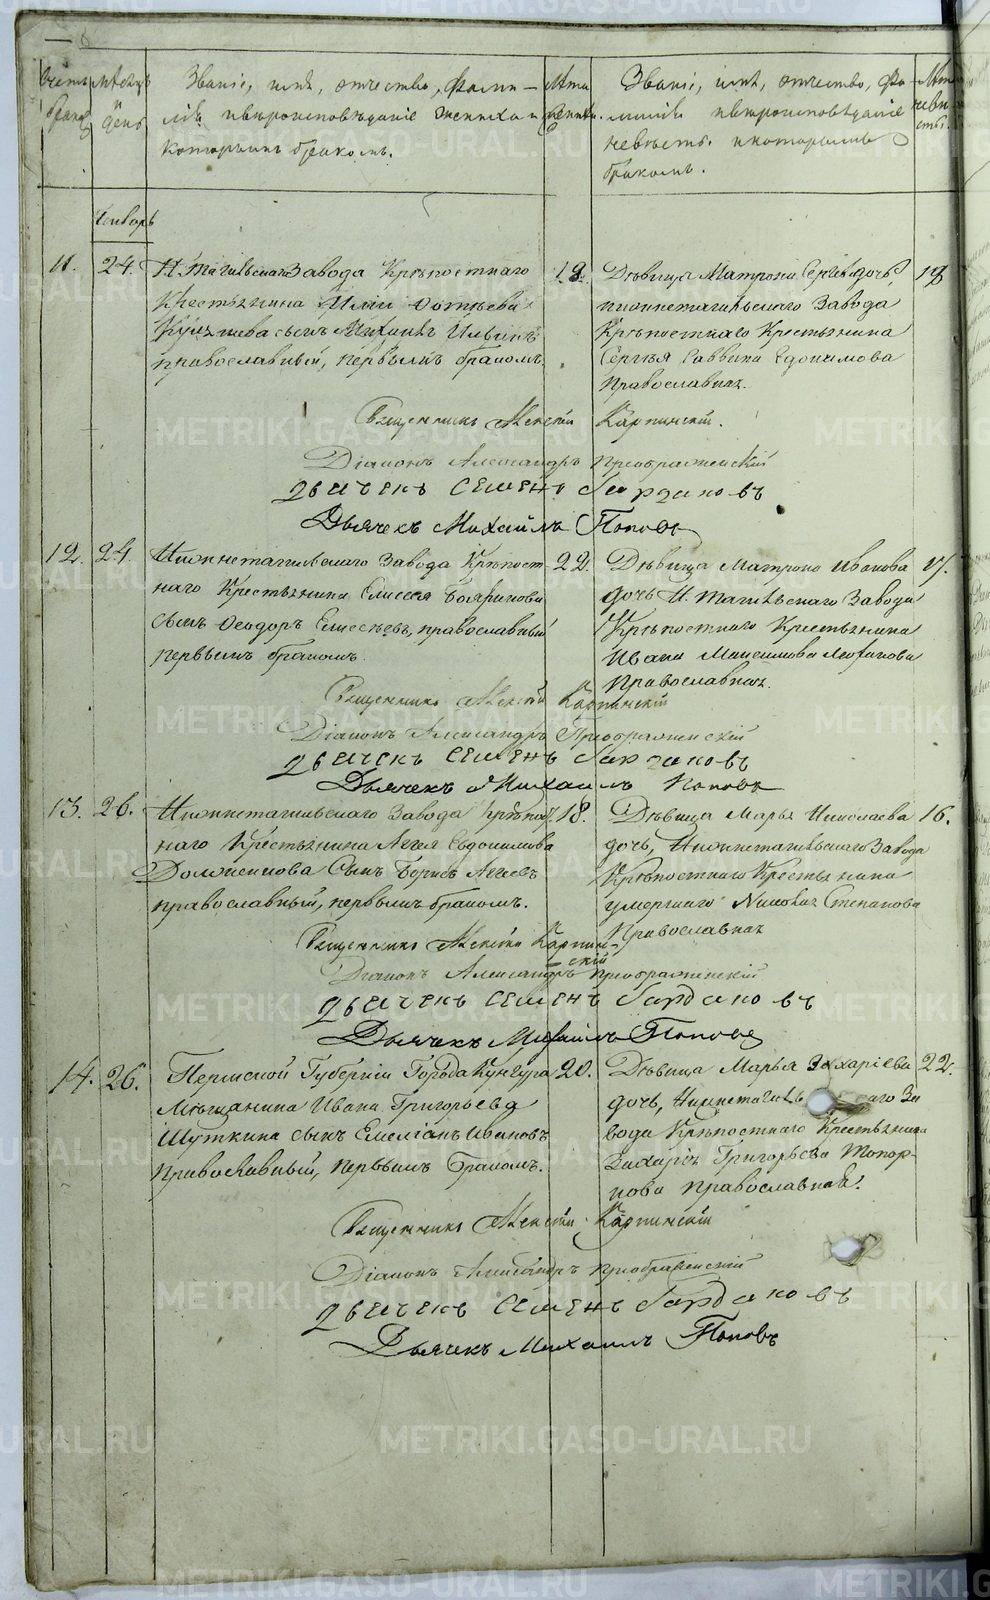 Счетъ браковъ
мѣсяцъ и день
Званіе, имя, отчество, фами-
лія и вѣроисповѣданіе жениха и
которымъ бракомъ.
Лѣта жениха.
Званіе, имя, отчество, фа-
милія и вѣроисповѣданіе
невѣсты. и которымъ
бракомъ.
Лѣта невѣсты.
Январь
11.
24.
Н. Тагильскаго Завода Крѣпостнаго
Крестьянина Иліи
сынъ Ильинъ
православный, первымъ бракомъ.
18.
Дѣвица Матрона Сергѣева дочь,
Нижнетагильскаго Завода
Крѣпостнаго Крестьянина
Сергѣя Саввина Едокимова
Православная.
Священникъ Алексій Карпинскій.
Діаконъ Александръ Преображенскій
Дьячекъ Семенъ
Дьячекъ Михайлъ Поповъ
12.
24.
Нижнетагильскаго Завода Крѣпост
наго Крестьянина Елисея
сынъ Ѳеодоръ Елисѣевъ, православный
первымъ бракомъ.
22.
Дѣвица Матрона Иванова
дочь Н. Тагильскаго Завода
Крѣпостнаго Крестьянина
Ивана Максимова
Православная.
17.
Священникъ Алексій Карпинскій
Діаконъ Александръ Преображенскій
Дьячекъ Семенъ
Дьячекъ Михаилъ Поповъ
13.
26.
Нижнетагильскаго Завода Крѣпост
наго Крестьянина Аггея Евдокимова
сынъ Борисъ Аггеевъ
православный, первымъ бракомъ.
18.
Дѣвица Марья Николаева
дочь, Нижнетагильскаго Завода
Крѣпостнаго Крестьянина
умершаго Николая Степанова
Православная
16.
Священникъ Алексій Карпин-
скій
Діаконъ Александръ Преображенскій
Дьячекъ Семенъ
Дьячекъ Михаилъ Поповъ
14.
26.
Пермской Губерніи Города Кунгура
Мѣщанина Ивана Григорьева
Шуткина сынъ Емеліанъ Ивановъ
Православный, первымъ бракомъ.
20.
Дѣвица Марья Захаріева
дочь, Нижнетагильскаго За
вода Крѣпостнаго Крестьянина
Захарія Григорьева Топор-
кова православная.
22.
Священникъ Алексій Карпинскій
Діаконъ Александръ Преображенскій
Дьячекъ Семенъ
Дьячекъ Михаилъ Поповъ
METRIKI.GASO-URAL.RU